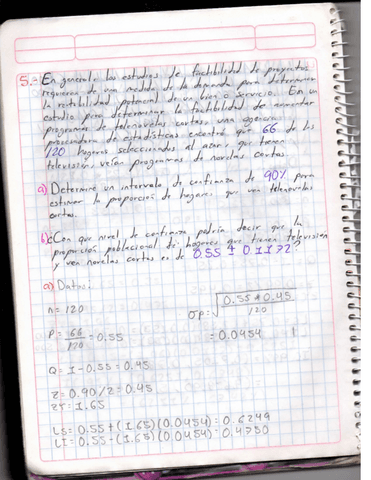 5.- En general, los estudios de factibilidad de proyectos
requieren de una medida de la demanda para determinar
la rentabilidad potencial de un bien o servicio. En un
estudio para determinar la factibilidad de aumentar
programas de telenovelas cortas, una agencia
procesadora de estadísticas encontró que 66 de los
120 hogares seleccionados al azar, que tienen
televisión, veían programas de novelas cortas.
a) Determine un intervalo de confianza de 90% para
estimar la proporción de hogares que ven telenovelas
cortas.
b) ¿Con que nivel de confianza podría decir que la
proporción poblacional de hogares que tienen televisión
y ven novelas cortas es de 0.55 ± 0.1172?
a) Datos:
n = 120
P = 66/120 = 0.55
Q = 1 - 0.55 = 0.45
z = 0.90/2 = 0.45
zt = 1.65
σp = √0.55 * 0.45 / 120
= 0.0454
Ls = 0.55 + (1.65)(0.0454) = 0.6249
LI = 0.55 - (1.65)(0.0454) = 0.4750